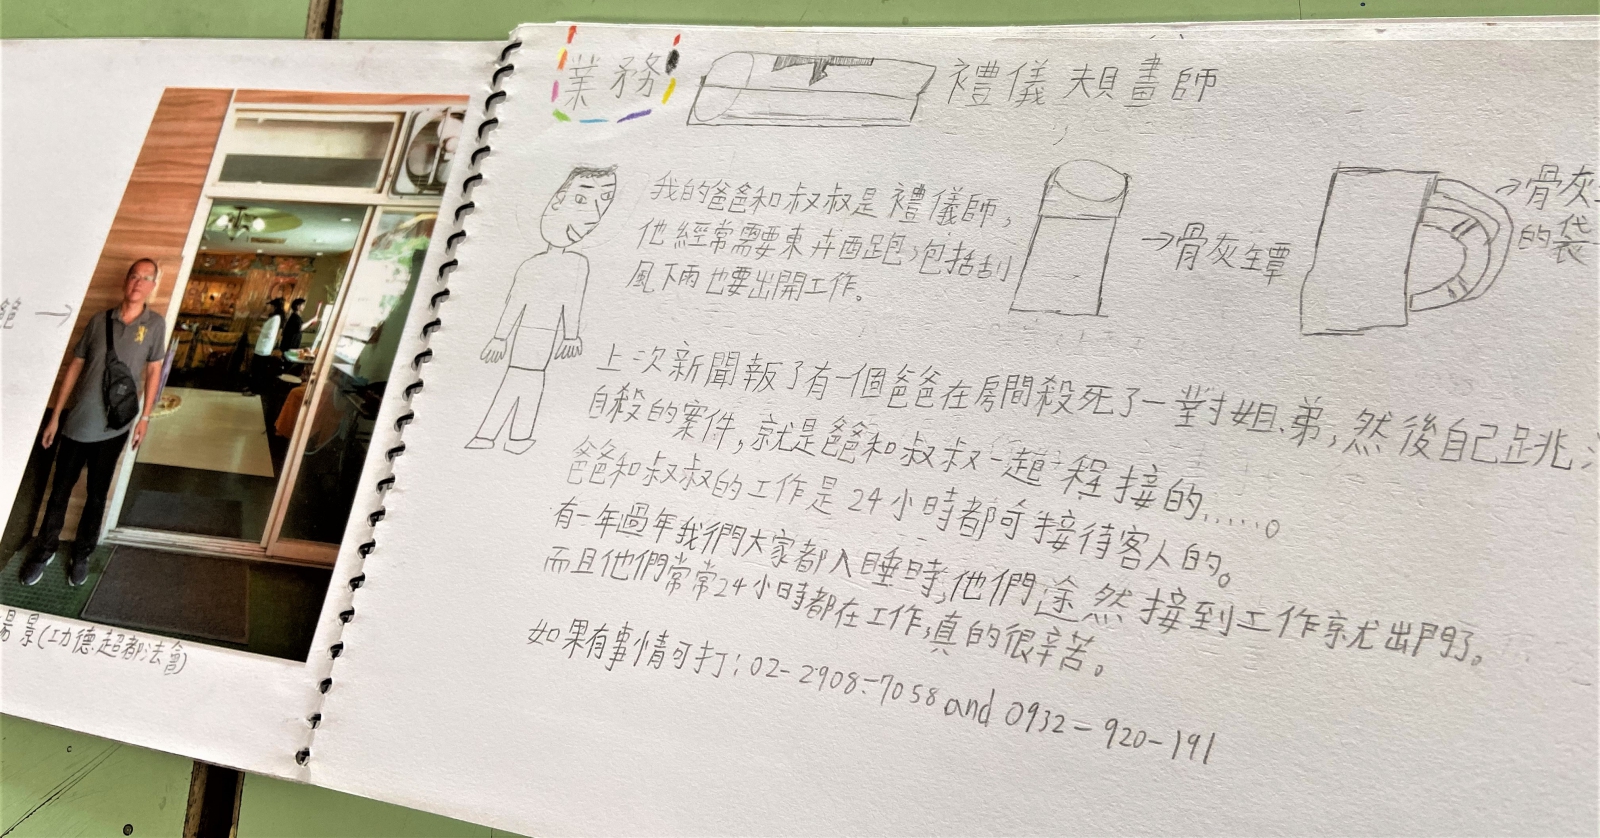 業務
禮儀規畫師
我的爸爸和叔叔是禮儀師,
他經常需要東奔西跑,包括刮
風下雨也要出開工作。
→骨灰罈
→骨灰
的袋
上次新聞報了有一個爸爸在房間殺死了一對姐弟,然後自己跳
自殺的案件,就是爸爸和叔叔一起程接的......。
爸爸和叔叔的工作是24小時都可接待客人的。
有一年過年我們大家都入睡時,他們途然接到工作就出門了。
而且他們常常24小時都在工作,真的很辛苦。
如果有事情可打:02-2908-7058 and 0932-920-191
→
場景(功德.超都法會)